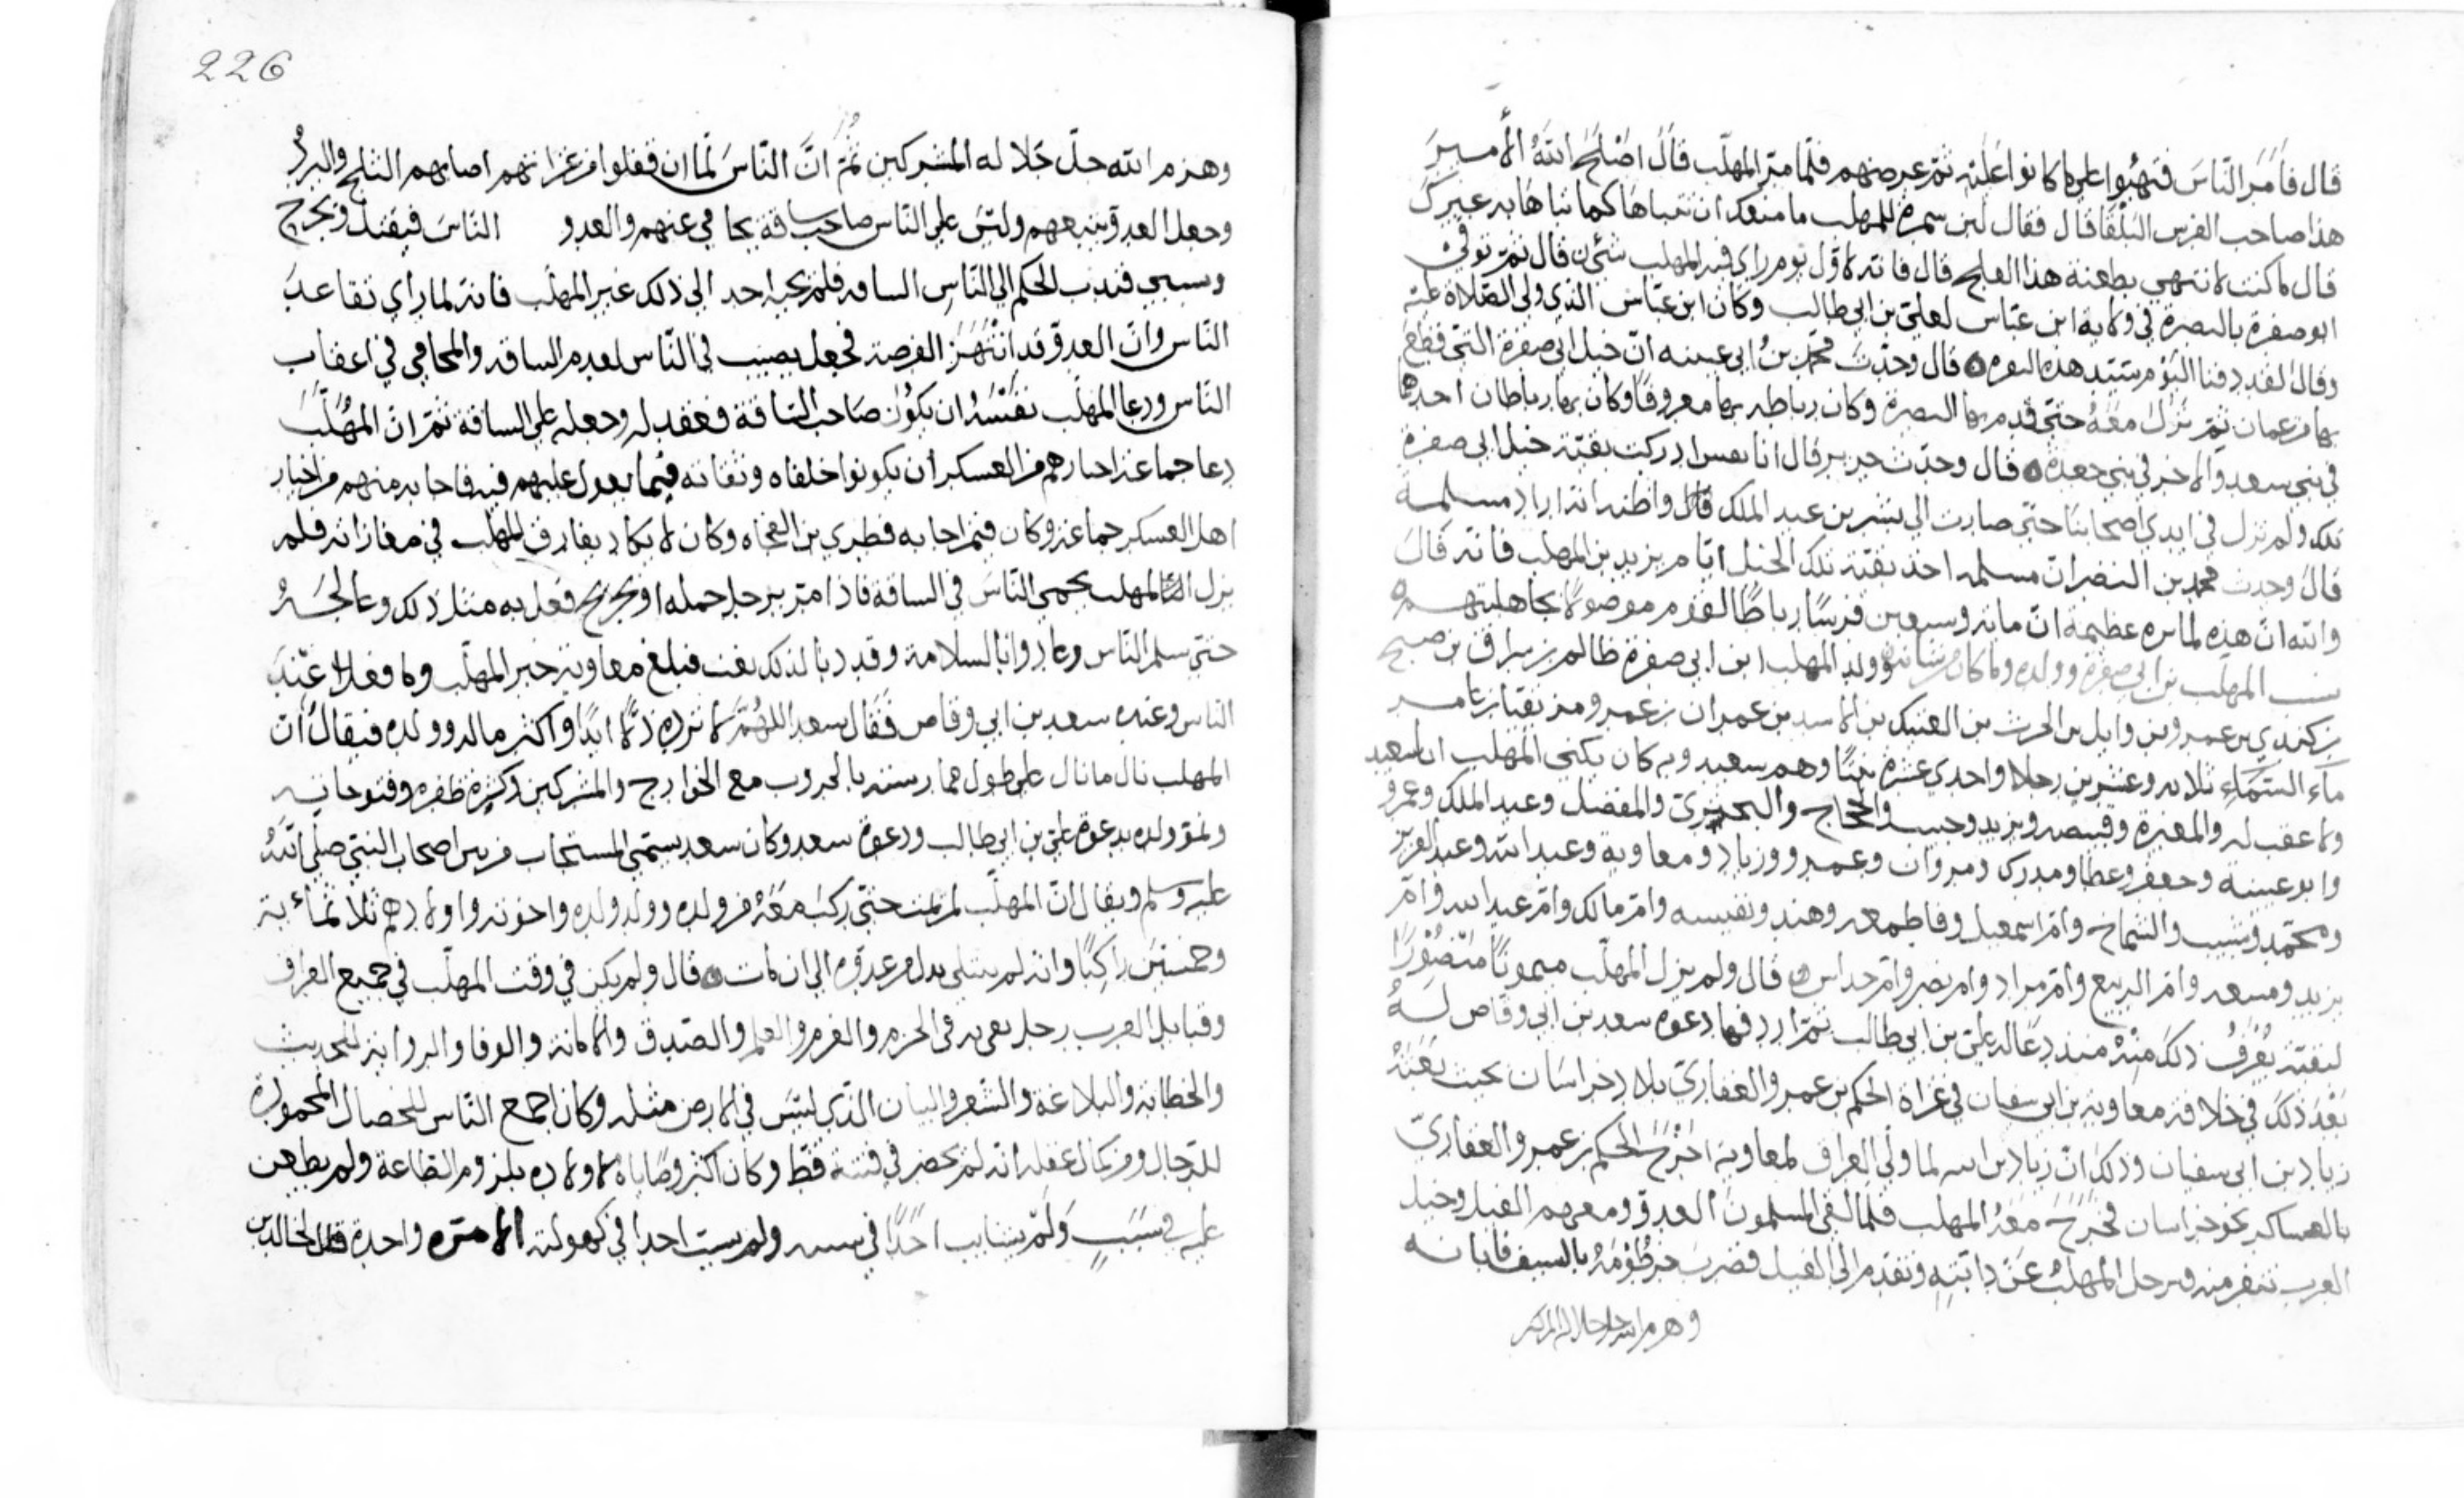 قال فأمر الناس فتهيوا على ما كانوا عليه ثم عرضهم فلما مر المهلب قال اصلح الله الأمير
هذا صاحب الفرس البلقا قال فقال لبن سمرة للمهلب ما منعك ان تنباها كما نباها به غيرك
قال ما كنت لانتهي بطعنة هذا العلج قال فانه لاول يوم راي فيه المهلب شئ قال ثم توفي
ابو صفرة بالبصرة في ولاية ابن عباس لعلي بن ابي طالب وكان ابن عباس الذي ولى الصلاة عليه
وقال لقد دفنا اليوم سيد هذه قال وحدث محمد بن ابي عيينه ان خيل ابي صفرة التي قطع
بها من عمان ثم نزل معه حتى قدم بها البصرة وكان رباطه بها معروفا وكان بها رباطان احدها
في بني سعد والاخر في بني جعده قال وحدث جرير قال انا ادركت بقية خيل ابي صفرة
تلك ولم تزل في ايدي اصحابنا حتى صارت الي بشر بن عبد الملك قال واظنه انه اراد مسلمه
قال وحدث محمد بن النضر ان مسلمه اخذ بقية تلك الخيل ايام يزيد بن المهلب فانه قال
والله ان هذه عظيمة ان مايه وسبعين فرسا رباطا لقوم موصولا بجاهليتهم
نسب المهلب بن ابي صفره وولده وما كان من شانه وولد المهلب ابن ابي صفرة ظالم بن سراق بن صبح
بن كندي بن عمرو بن وايل بن الحرث بن العتيك بن الاسد بن عمران بن عمرو مزيقيا بن عامر
ماء السماء ثلاثه وعشرين رجلا واحدى عشرة بنتا وهم سعيد وبه كان يكنى المهلب ابا سعيد
ولا عقب له والمغيرة وقبيصه ويزيد وحبيب والحجاج والبحتري والمفضل وعبد الملك وعمرو
وابو عيينه وجعفر وعطا ومدرك ومروان وعمرو وزياد ومعاوية وعبد الله وعبد العزيز
ومحمد وشبيب والشماخ وام اسمعيل وفاطمه وهند ونفيسه وام مالك وام عبد الله وام
يزيد وام الربيع وام مراد وام نصر وام خداس قال ولم يزل المهلب ميمونا منصورا
يعرف ذلك منه منذ دعا له علي بن ابي طالب ثم دعوه سعد بن ابي وقاص له
بعد ذلك في خلافة معاوية بن ابي سفيان في غزاة الحكم بن عمرو الغفاري بلاد خراسان بحيث بعثه
زياد بن ابي سفيان وذلك ان زياد لما ولي العراق لمعاوية اخرج الحكم بن عمرو الغفاري
بالعساكر نحو خراسان فخرج معه المهلب فلما لقي المسلمون العدو ومعهم الفيل وخيل
العرب تنفر منه فترجل المهلب عن دابته وتقدم الى الفيل فضرب خرطومه بالسيف فابانه
وهزم الله جل جلاله المشركين
226
وهزم الله جل جلاله المشركين ثم ان الناس لما ان قفلوا من غزاتهم اصابهم الثلج والبرد
وجعل العدو يتبعهم وليس على الناس صاحب ساقة يحامي عنهم والعدو الناس فيقتل ويجرح
ويسبي فندب الحكم الي الناس الساقه فلم يجبه احد الي ذلك غير المهلب فانه لما راي تقاعد
الناس وان العدو قد انتهز الفرصة فجعل يصيب في الناس لعدم الساقه والمحامي في اعقاب
الناس ودعا المهلب نفسه ان يكون صاحب الساقة فعقد له وجعله على الساقة ثم ان المهلب
دعا جماعة اختارهم من العسكر ان يكونوا خلفاه وثقاته فيما يعول عليهم فيه فاجابه منهم من اخيار
اهل العسكر جماعة وكان فيمن اجابه قطري بن الفجاه وكان لا يكاد يفارق المهلب في مغازاته فلم
يزل المهلب يحمي الناس في الساقة فاذا مر برجل حمله او بجريح فعل به مثل ذلك
حتى سلم الناس وعادوا بالسلامة فبلغ معاوية خبر المهلب وما فعل عند
الناس وعنده سعد بن ابي وقاص فقال سعد اللهم لا تره ذلا ابدا واكثر ماله وولده فيقال ان
المهلب نال ما نال على طول ممارسته بالحروب مع الخوارج والمشركين وكثرة ظفره وفتوحاته
ونمو ولده بدعوة علي بن ابي طالب ودعوة سعد وكان سعد يسمى المستجاب من بين اصحاب النبي صلى الله
عليه وسلم ويقال ان المهلب لم يمت حتى ركب معه من ولده وولد ولده واخوته واولادهم ثلاثمائة
وخمسين راكبا وانه لم يبتلى بذل من عدوه الى ان مات قال ولم يكن في وقت المهلب في جميع العراق
وقبايل العرب رجل يفي به في الحزم والعزم والعلم والصدق والامانة والوفا والرواية للحديث
والخطابة والبلاغة والشعر والبيان الذي ليس في الارض مثله وكان اجمع الناس للخصال المحمودة
للرجال ومن كمال عقله انه لم يحضر في فتنة قط وكان اكثر وصاياه لاولاده بلزوم الطاعة ولم يطعن
عليه في سبب ولم يشاتب احدا في ولم يسب احدا في كهولته الا مره واحدة قال لخالد بن